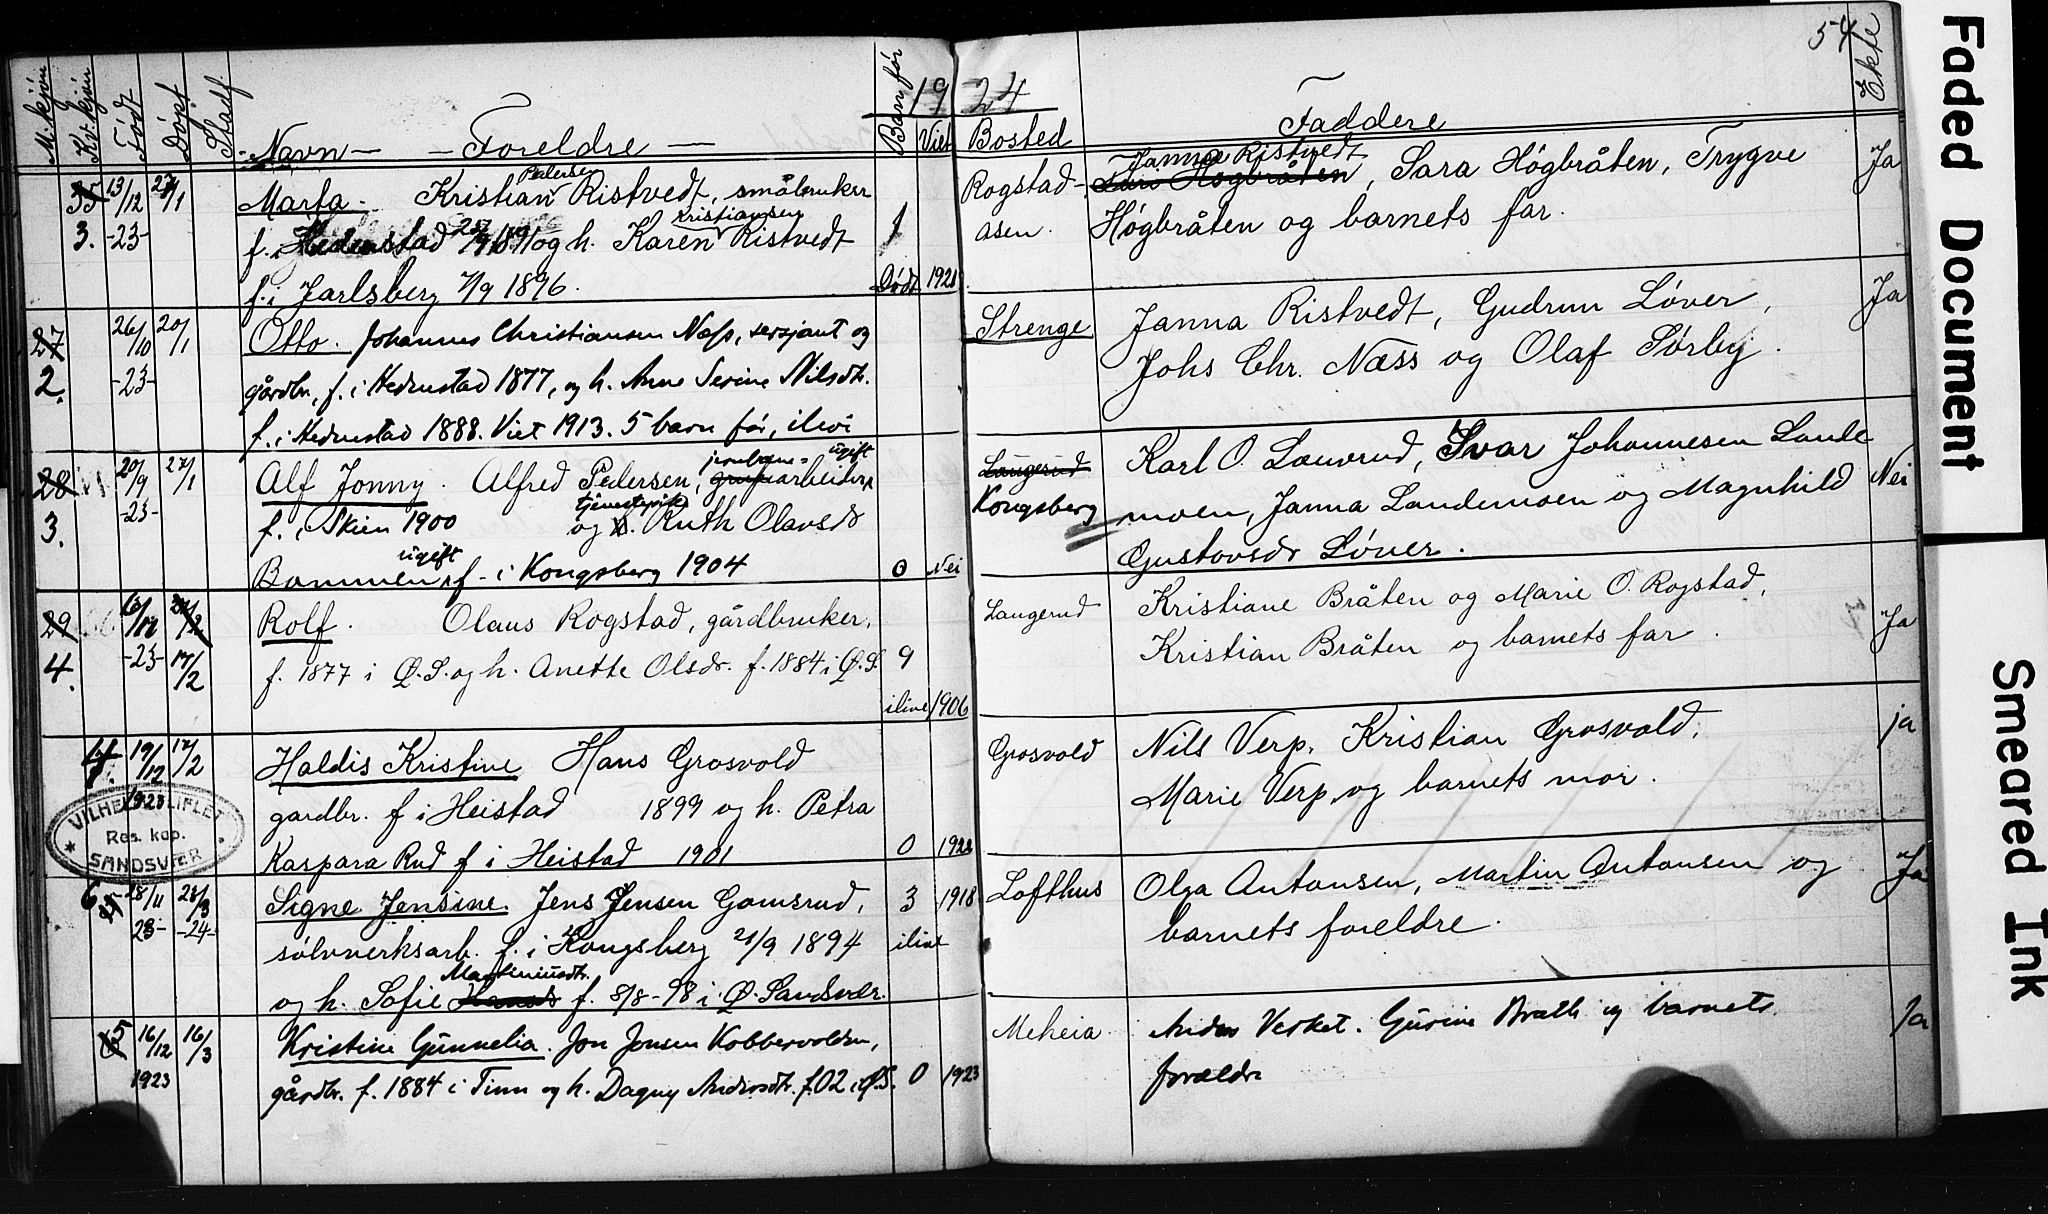 19 24
54
M. kjøn Kv. kjøn Født Døpt Stadf. Navn — Foreldre — Barn før Viet Bosted Faddere Ekte
Pedersen
Janna Ristvedt
33 13/12 27/1 Marta Kristian Ristvedt, småbruker Rogstad- Sara Høgbråten, Trygve Ja
Kristiansen
3. -23- f. i Hedenstad og h. Karen Ristvedt 1 åsen. Høgbråten og barnets far.
f. i Jarlsberg 7/9 1896. Dødt 1921
27 26/10 20/1 Otto. Johannes Christiansen Næss, sersjant og Strenge Janna Ristvedt, Gudrun Løver, Ja
2. -23- gårdbr, f. i Hedenstad 1877, og h. Anne Serine Nilsdtr. Johs Chr. Næss og Olaf Sørby.
f. i Hedenstad 1888. Viet 1913. 5 barn før, ilive
jernbane- ugift
28 20/9 27/1 Alf Jonny. Alfred Pedersen, grubearbeider Laugerud Karl O. Lauvrud, Ivar Johannesen Lande
tjenestepike
3. -23- f. i Skien 1900 og h. Ruth Olavsdr Kongsberg moen, Janna Landemoen og Magnhild Nei
ugift
Bommen, f. i Kongsberg 1904 0 Nei Gustavsdr Løver.
29 24/2 Rolf. Olaus Rogstad, gårdbruker, Laugerud Kristiane Bråten og Marie O. Rogstad, Ja
4. -23- 17/2 f. 1877 i Ø.S. og h. Anette Olsdr. f. 1884 i Ø.S. 9 Kristian Bråten og barnets far.
ilive 1906
19/12 17/2 Haldis Kristine Hans Grosvold Grosvold Nils Verp, Kristian Grosvold, ja
1923 gardbr. f i Heistad 1899 og h. Petra Marie Verp, og barnets mor.
Kaspara Rud f i Heistad 1901 0 1923
VILHELM LIFLET
Res. kap.
SANDSVÆR
6 28/11 28/3 Signe Jensine. Jens Jensen Gamsrud, 3 1918 Lofthus Olga Antonsen, Martin Antonsen og Ja
23- -24- sølvverksarb. f. i Kongsberg 21/9 1894 ilive barnets foreldre.
Martiniusdtr.
og h. Sofie Hansdr f. 8/8-98 i Ø. Sandsvær.
5 16/12 16/3 Kristine Gunnelia. Jon Jonsen Kobbervolden, Meheia Anders Verket. Gurine Bratli og barnets Ja
1923 gårdbr. f. 1884 i Tinn og h. Dagny Andersdtr. f. 02 i Ø.S. 0 1923 forældre
Faded Document
Smeared Ink